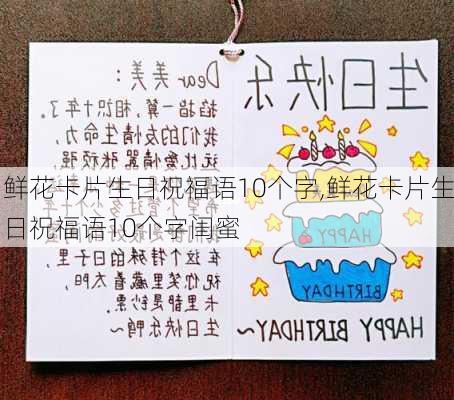 Dear 美美:
掐指一算,相识十年了。
我们的友情生命力
远比爱情嚣张
在这个特殊的日子里
祝你笑里藏着太阳
卡里都是钞票。
生日快乐鸭~
生日快乐
HAPPY
BIRTHDAY
HAPPY BIRTHDAY~
鲜花卡片生日祝福语10个字,鲜花卡片生
日祝福语10个字闺蜜